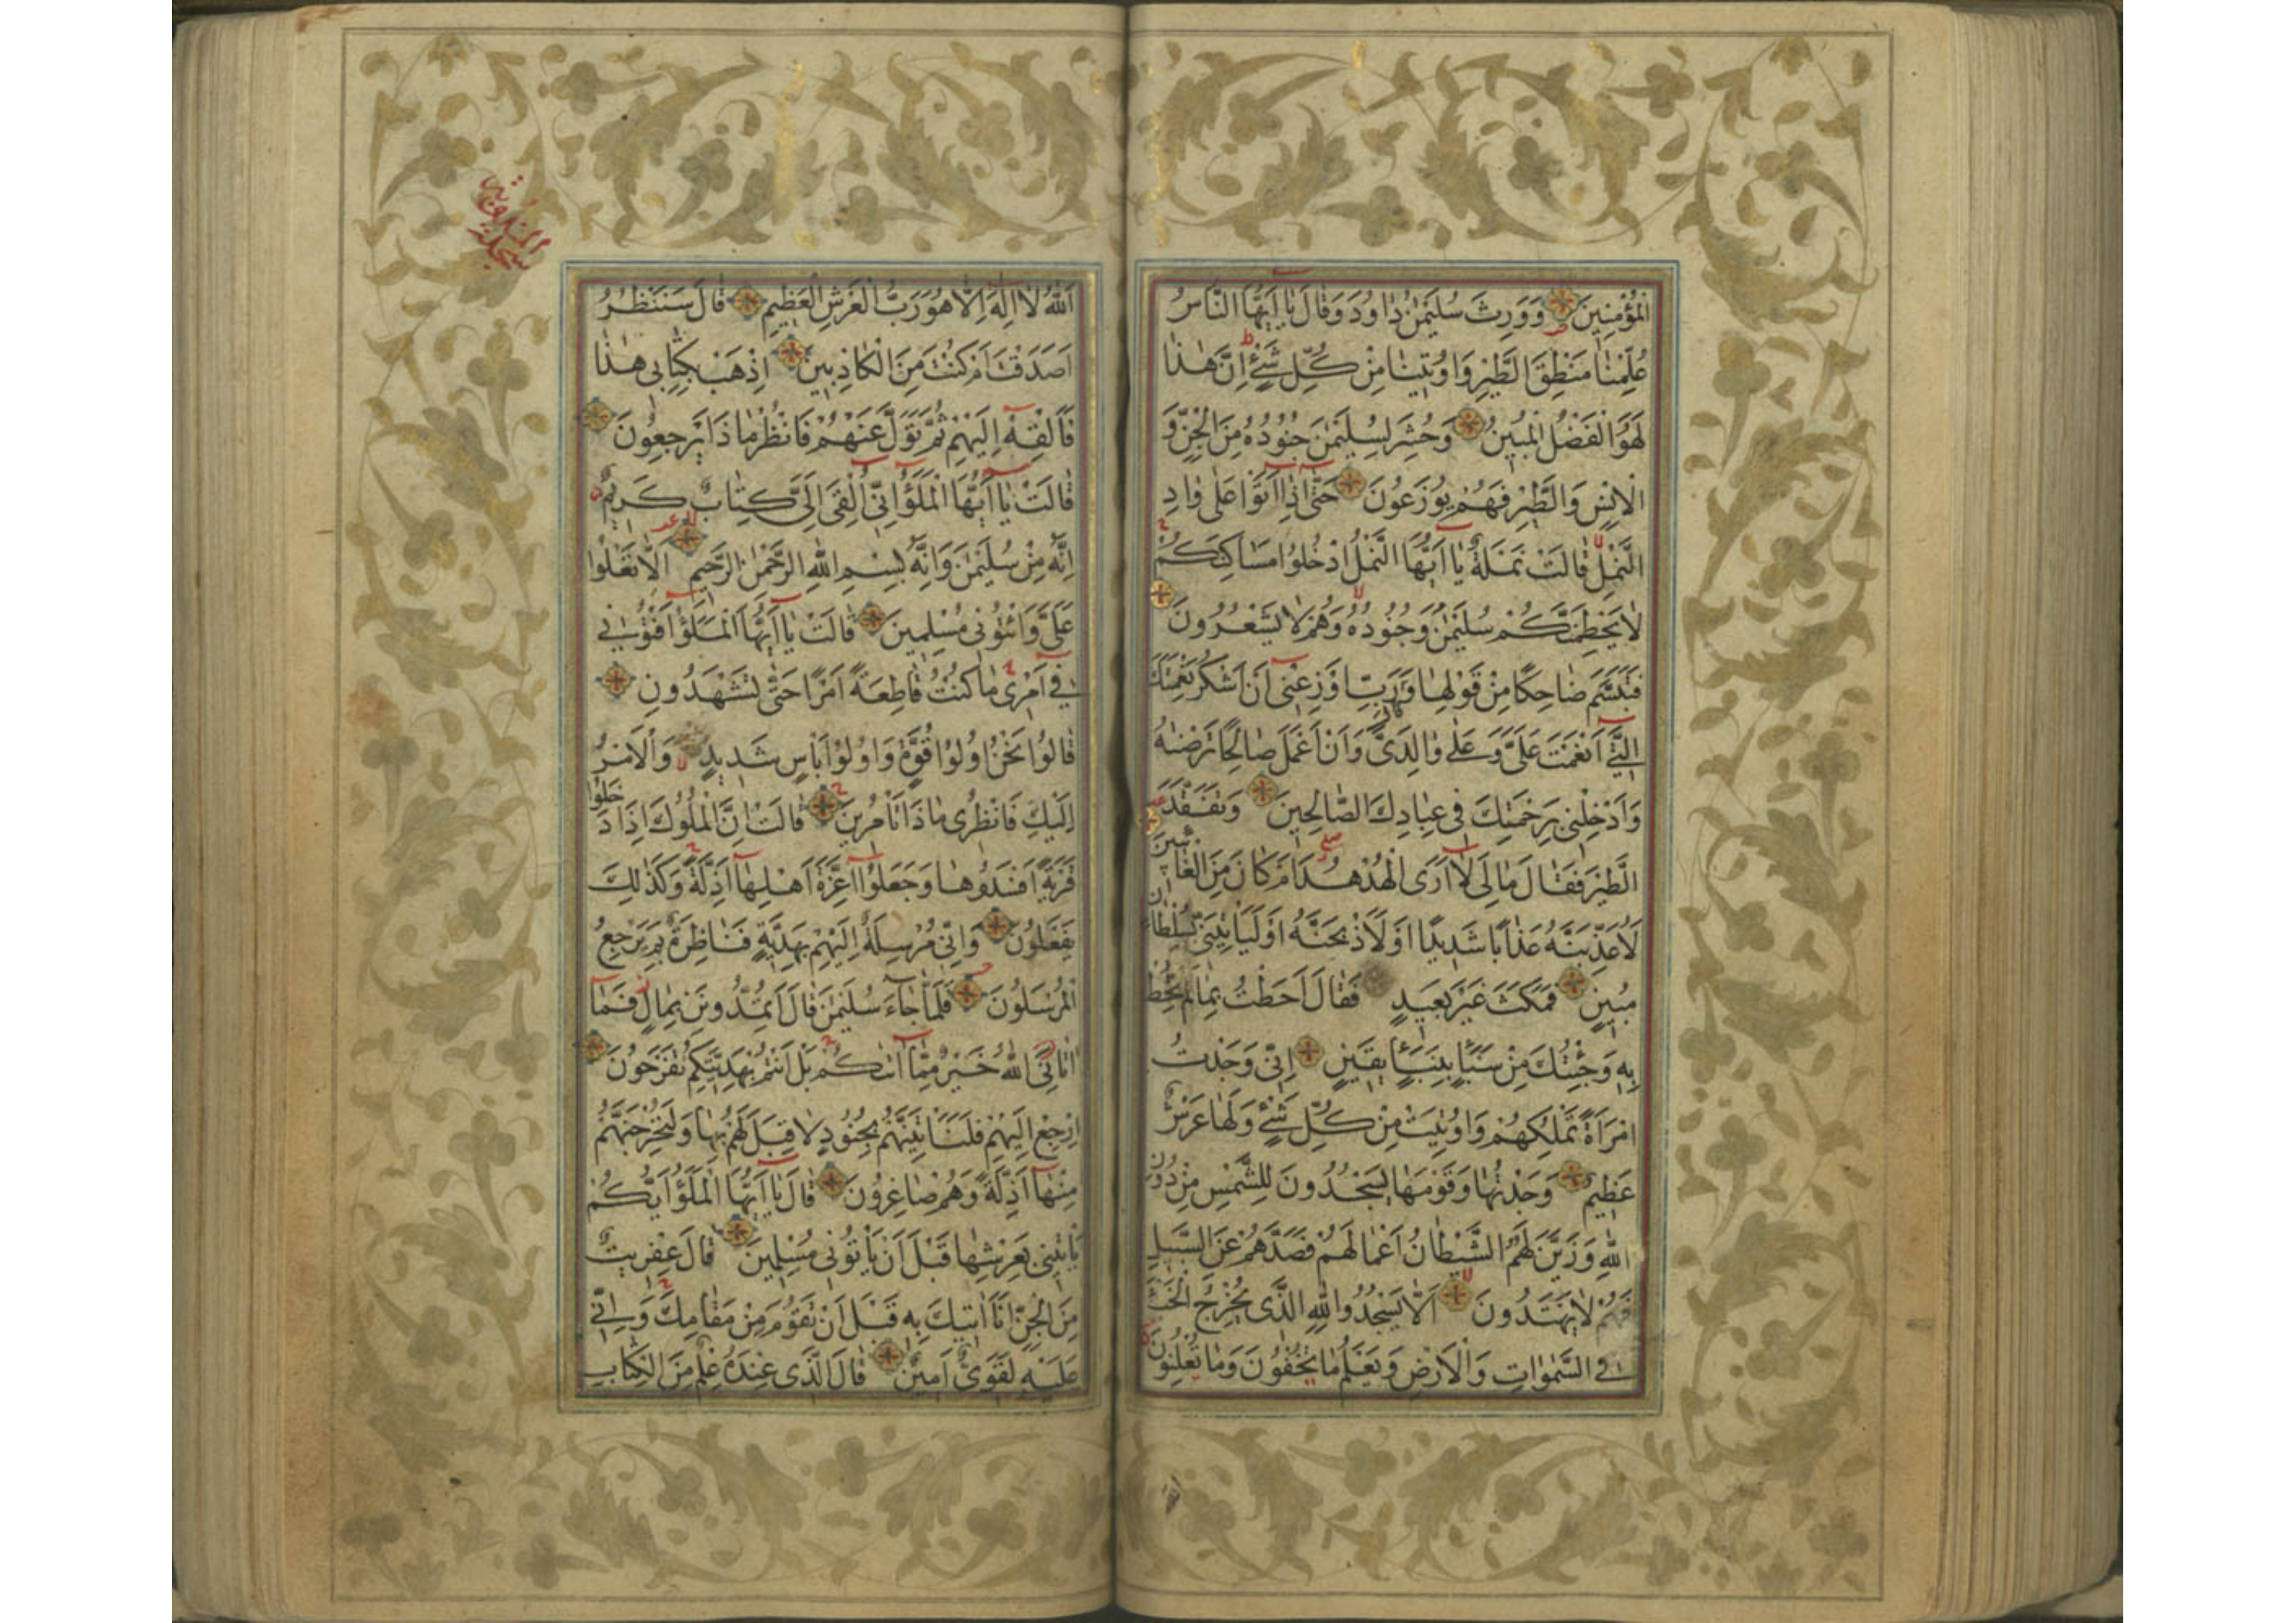 الْمُؤْمِنِينَ وَوَرِثَ سُلَيْمٰنُ دٰاوُدَ وَقٰالَ يٰا اَيُّهَا النّٰاسُ
عُلِّمْنٰا مَنْطِقَ الطَّيْرِ وَاُوتِينٰا مِنْ كُلِّ شَيْءٍ اِنَّ هٰذٰا
لَهُوَ الْفَضْلُ الْمُبِينُ وَحُشِرَ لِسُلَيْمٰنَ جُنُودُهُ مِنَ الْجِنِّ وَ
الْاِنْسِ وَالطَّيْرِ فَهُمْ يُوزَعُونَ حَتّٰى اِذٰا اَتَوْا عَلٰى وٰادِ
النَّمْلِ قٰالَتْ نَمْلَةٌ يٰا اَيُّهَا النَّمْلُ ادْخُلُوا مَسَاكِنَكُمْ
لٰا يَحْطِمَنَّكُمْ سُلَيْمٰنُ وَجُنُودُهُ وَهُمْ لٰا يَشْعُرُونَ
فَتَبَسَّمَ ضٰاحِكًا مِنْ قَوْلِهٰا وَقَالَ رَبِّ اَوْزِعْنِي اَنْ اَشْكُرَ نِعْمَتَكَ
الَّتِي اَنْعَمْتَ عَلَيَّ وَعَلٰى وٰالِدَيَّ وَاَنْ اَعْمَلَ صٰالِحًا تَرْضٰيهُ
وَاَدْخِلْنِي بِرَحْمَتِكَ فِي عِبٰادِكَ الصّٰالِحِينَ وَتَفَقَّدَ
الطَّيْرَ فَقٰالَ مٰا لِيَ لٰا اَرَى الْهُدْهُدَ اَمْ كٰانَ مِنَ الْغٰائِبِينَ
لَاُعَذِّبَنَّهُ عَذٰابًا شَدِيدًا اَوْ لَاَذْبَحَنَّهُ اَوْ لَيَأْتِيَنِّي بِسُلْطٰانٍ
مُبِينٍ فَمَكَثَ غَيْرَ بَعِيدٍ فَقٰالَ اَحَطْتُ بِمٰا لَمْ تُحِطْ
بِهِ وَجِئْتُكَ مِنْ سَبَأٍ بِنَبَأٍ يَقِينٍ اِنِّي وَجَدْتُ
امْرَاَةً تَمْلِكُهُمْ وَاُوتِيَتْ مِنْ كُلِّ شَيْءٍ وَلَهٰا عَرْشٌ
عَظِيمٌ وَجَدْتُهٰا وَقَوْمَهٰا يَسْجُدُونَ لِلشَّمْسِ مِنْ دُونِ
اللّٰهِ وَزَيَّنَ لَهُمُ الشَّيْطٰانُ اَعْمٰالَهُمْ فَصَدَّهُمْ عَنِ السَّبِيلِ
فَهُمْ لٰا يَهْتَدُونَ اَلّٰا يَسْجُدُوا لِلّٰهِ الَّذِي يُخْرِجُ الْخَبْءَ
فِي السَّمٰوٰاتِ وَالْاَرْضِ وَيَعْلَمُ مٰا تُخْفُونَ وَمٰا تُعْلِنُونَ
اَللّٰهُ لٰا اِلٰهَ اِلّٰا هُوَ رَبُّ الْعَرْشِ الْعَظِيمِ قٰالَ سَنَنْظُرُ
اَصَدَقْتَ اَمْ كُنْتَ مِنَ الْكٰاذِبِينَ اِذْهَبْ بِكِتٰابِي هٰذٰا
فَاَلْقِهْ اِلَيْهِمْ ثُمَّ تَوَلَّ عَنْهُمْ فَانْظُرْ مٰا ذٰا يَرْجِعُونَ
قٰالَتْ يٰا اَيُّهَا الْمَلَؤُا اِنِّي اُلْقِيَ اِلَيَّ كِتٰابٌ كَرِيمٌ
اِنَّهُ مِنْ سُلَيْمٰنَ وَاِنَّهُ بِسْمِ اللّٰهِ الرَّحْمٰنِ الرَّحِيمِ اَلّٰا تَعْلُوا
عَلَيَّ وَاْتُونِي مُسْلِمِينَ قٰالَتْ يٰا اَيُّهَا الْمَلَؤُا اَفْتُونِي
فِي اَمْرِي مٰا كُنْتُ قٰاطِعَةً اَمْرًا حَتّٰى تَشْهَدُونِ
قٰالُوا نَحْنُ اُولُوا قُوَّةٍ وَاُولُوا بَأْسٍ شَدِيدٍ وَالْاَمْرُ
اِلَيْكِ فَانْظُرِي مٰا ذٰا تَأْمُرِينَ قٰالَتْ اِنَّ الْمُلُوكَ اِذٰا دَخَلُوا
قَرْيَةً اَفْسَدُوهٰا وَجَعَلُوا اَعِزَّةَ اَهْلِهٰا اَذِلَّةً وَكَذٰلِكَ
يَفْعَلُونَ وَاِنِّي مُرْسِلَةٌ اِلَيْهِمْ بِهَدِيَّةٍ فَنٰاظِرَةٌ بِمَ يَرْجِعُ
الْمُرْسَلُونَ فَلَمّٰا جٰاءَ سُلَيْمٰنَ قٰالَ اَتُمِدُّونَنِ بِمٰالٍ فَمٰا
اٰتٰانِيَ اللّٰهُ خَيْرٌ مِمّٰا اٰتٰيكُمْ بَلْ اَنْتُمْ بِهَدِيَّتِكُمْ تَفْرَحُونَ
اِرْجِعْ اِلَيْهِمْ فَلَنَأْتِيَنَّهُمْ بِجُنُودٍ لٰا قِبَلَ لَهُمْ بِهٰا وَلَنُخْرِجَنَّهُمْ
مِنْهٰا اَذِلَّةً وَهُمْ صٰاغِرُونَ قٰالَ يٰا اَيُّهَا الْمَلَؤُا اَيُّكُمْ
يَأْتِينِي بِعَرْشِهٰا قَبْلَ اَنْ يَأْتُونِي مُسْلِمِينَ قٰالَ عِفْرِيتٌ
مِنَ الْجِنِّ اَنَا اٰتِيكَ بِهِ قَبْلَ اَنْ تَقُومَ مِنْ مَقٰامِكَ وَاِنِّي
عَلَيْهِ لَقَوِيٌّ اَمِينٌ قٰالَ الَّذِي عِنْدَهُ عِلْمٌ مِنَ الْكِتٰابِ